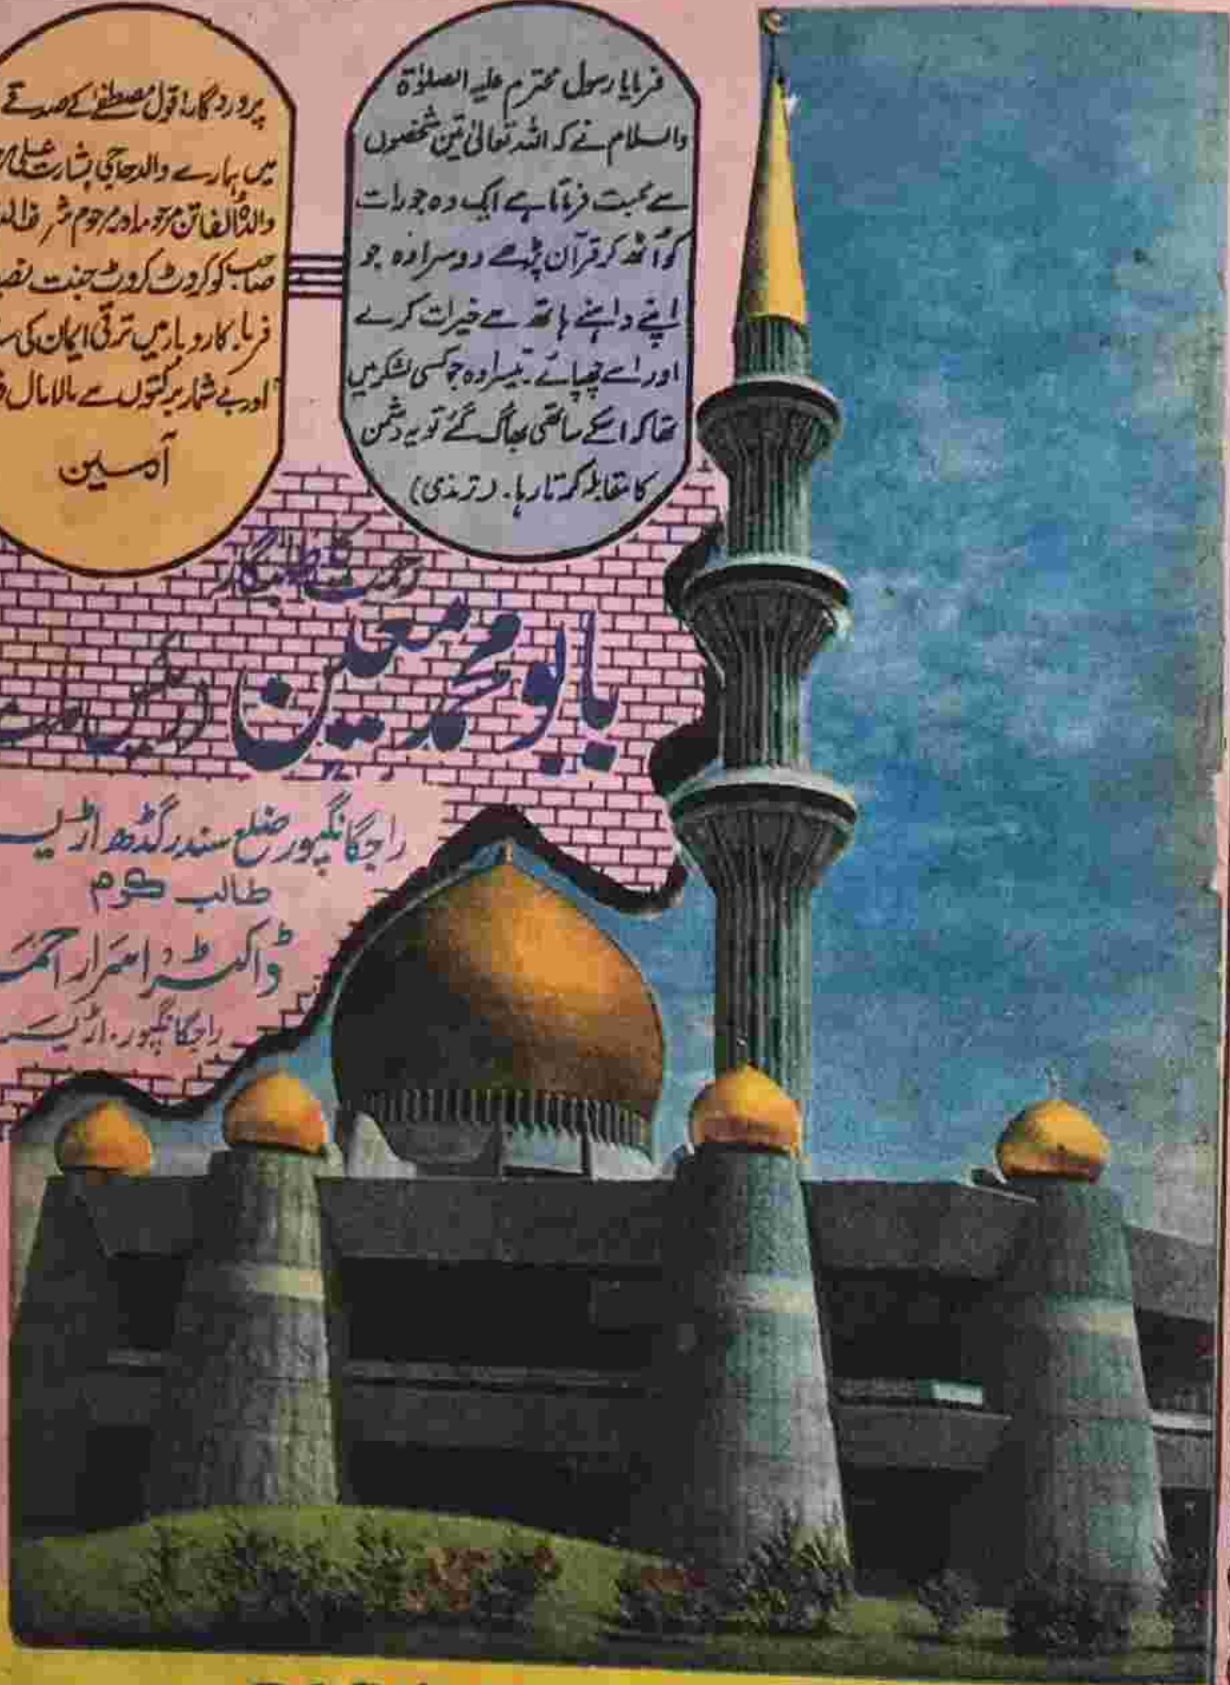 فرمایا رسول محترم علیہ الصلوٰۃ
والسلام نے کہ اللہ تعالیٰ تین شخصوں
سے محبت فرماتا ہے ایک وہ جو رات
کو اٹھ کر قرآن پڑھے دوسرا وہ جو
اپنے داہنے ہاتھ سے خیرات کرے
اور اسے چھپائے۔ تیسرا وہ جو کسی لشکر میں
تھا کہ اسکے ساتھی بھاگ گئے تو یہ دشمن
کا مقابلہ کرتا رہا۔ (ترمذی)
پروردگار! قول مصطفےٰ کے صدقے
میں ہمارے والد حاجی بشارت علی
والدہ مرحومہ اور مرحوم
صاحب کو کروٹ کروٹ جنت
فرما۔ کاروبار میں ترقی ایمان کی
اور بے شمار برکتوں سے مالا مال
آمین
رحمت کے طلبگار
بابو محمد معین
راجگانگپور ضلع سندر گڈھ اڑیسہ
طالب کرم
ڈاکٹر اسرار احمد
راجگانگپور۔ اڑیسہ